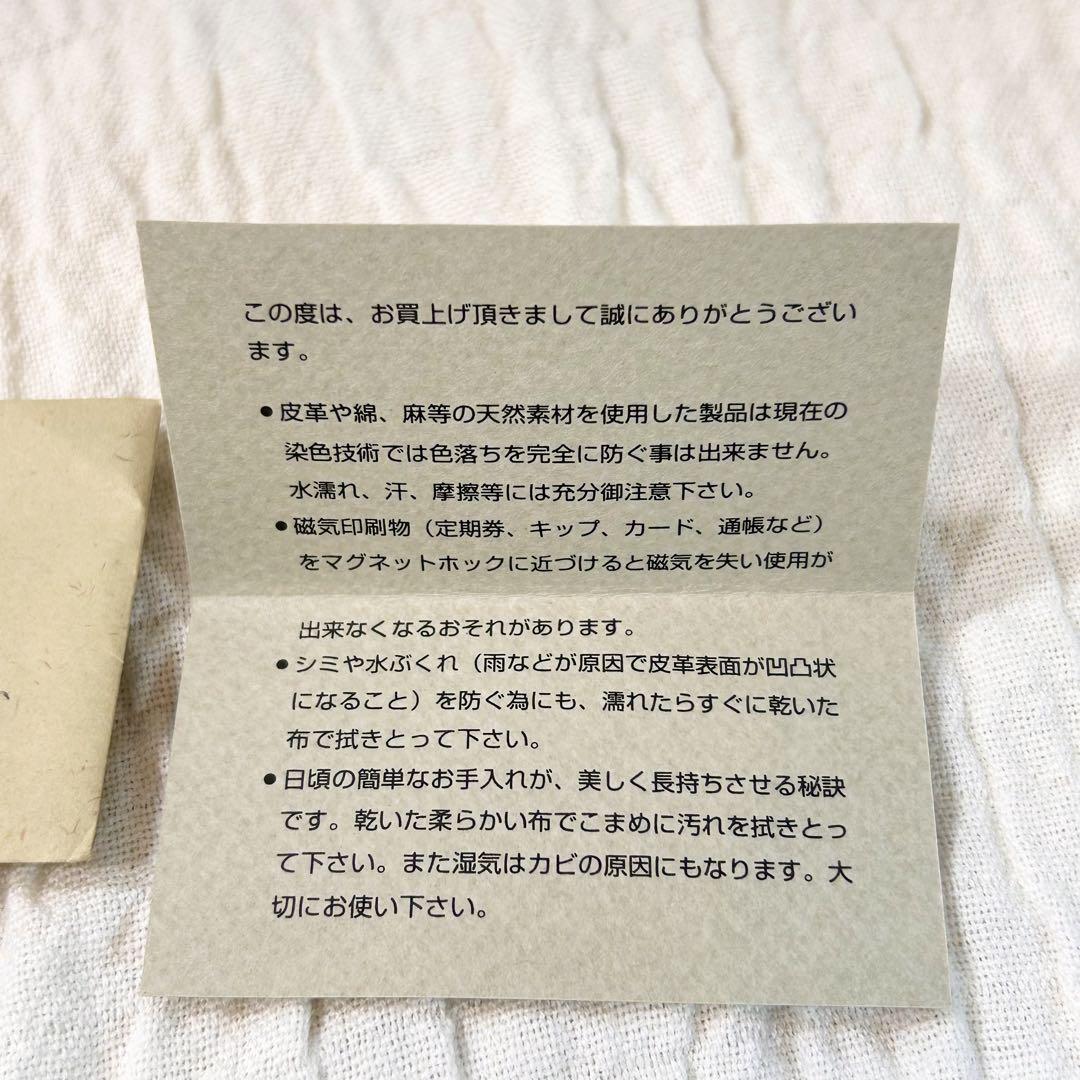 この度は、お買上げ頂きまして誠にありがとうござい
ます。
●皮革や綿、麻等の天然素材を使用した製品は現在の
染色技術では色落ちを完全に防ぐ事は出来ません。
水濡れ、汗、摩擦等には充分御注意下さい。
●磁気印刷物（定期券、キップ、カード、通帳など）
をマグネットホックに近づけると磁気を失い使用が
出来なくなるおそれがあります。
●シミや水ぶくれ（雨などが原因で皮革表面が凹凸状
になること）を防ぐ為にも、濡れたらすぐに乾いた
布で拭きとって下さい。
●日頃の簡単なお手入れが、美しく長持ちさせる秘訣
です。乾いた柔らかい布でこまめに汚れを拭きとっ
て下さい。また湿気はカビの原因にもなります。大
切にお使い下さい。